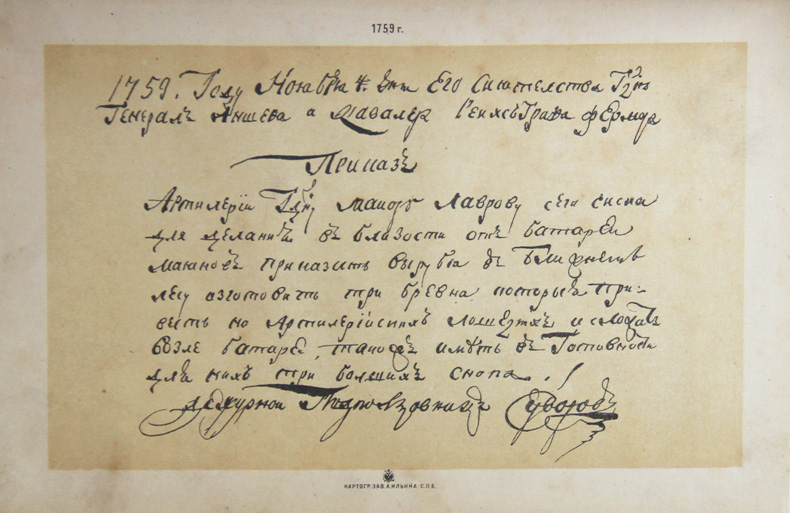 1759 г.
1759. Году Ноября 4. дня Его Сиятелства Гдна
Генералъ Аншефа и Кавалера Графа Фермора
Приказъ
Артилерїи Гдну маиору Лаврову сего числа
для делания въ близости отъ батареи
маяковъ приказать вырубя въ ближнемъ
лесу изготовить три бревна которыя при-
весть на Артилерїискихъ лошедяхъ и сложить
возле батареи, такожъ иметь въ Готовности
для нихъ три большихъ снопа.
дежурной Подполковникъ Суворовъ
КАРТОГР. ЗАВ. А. ИЛЬИНА. С.П.Б.